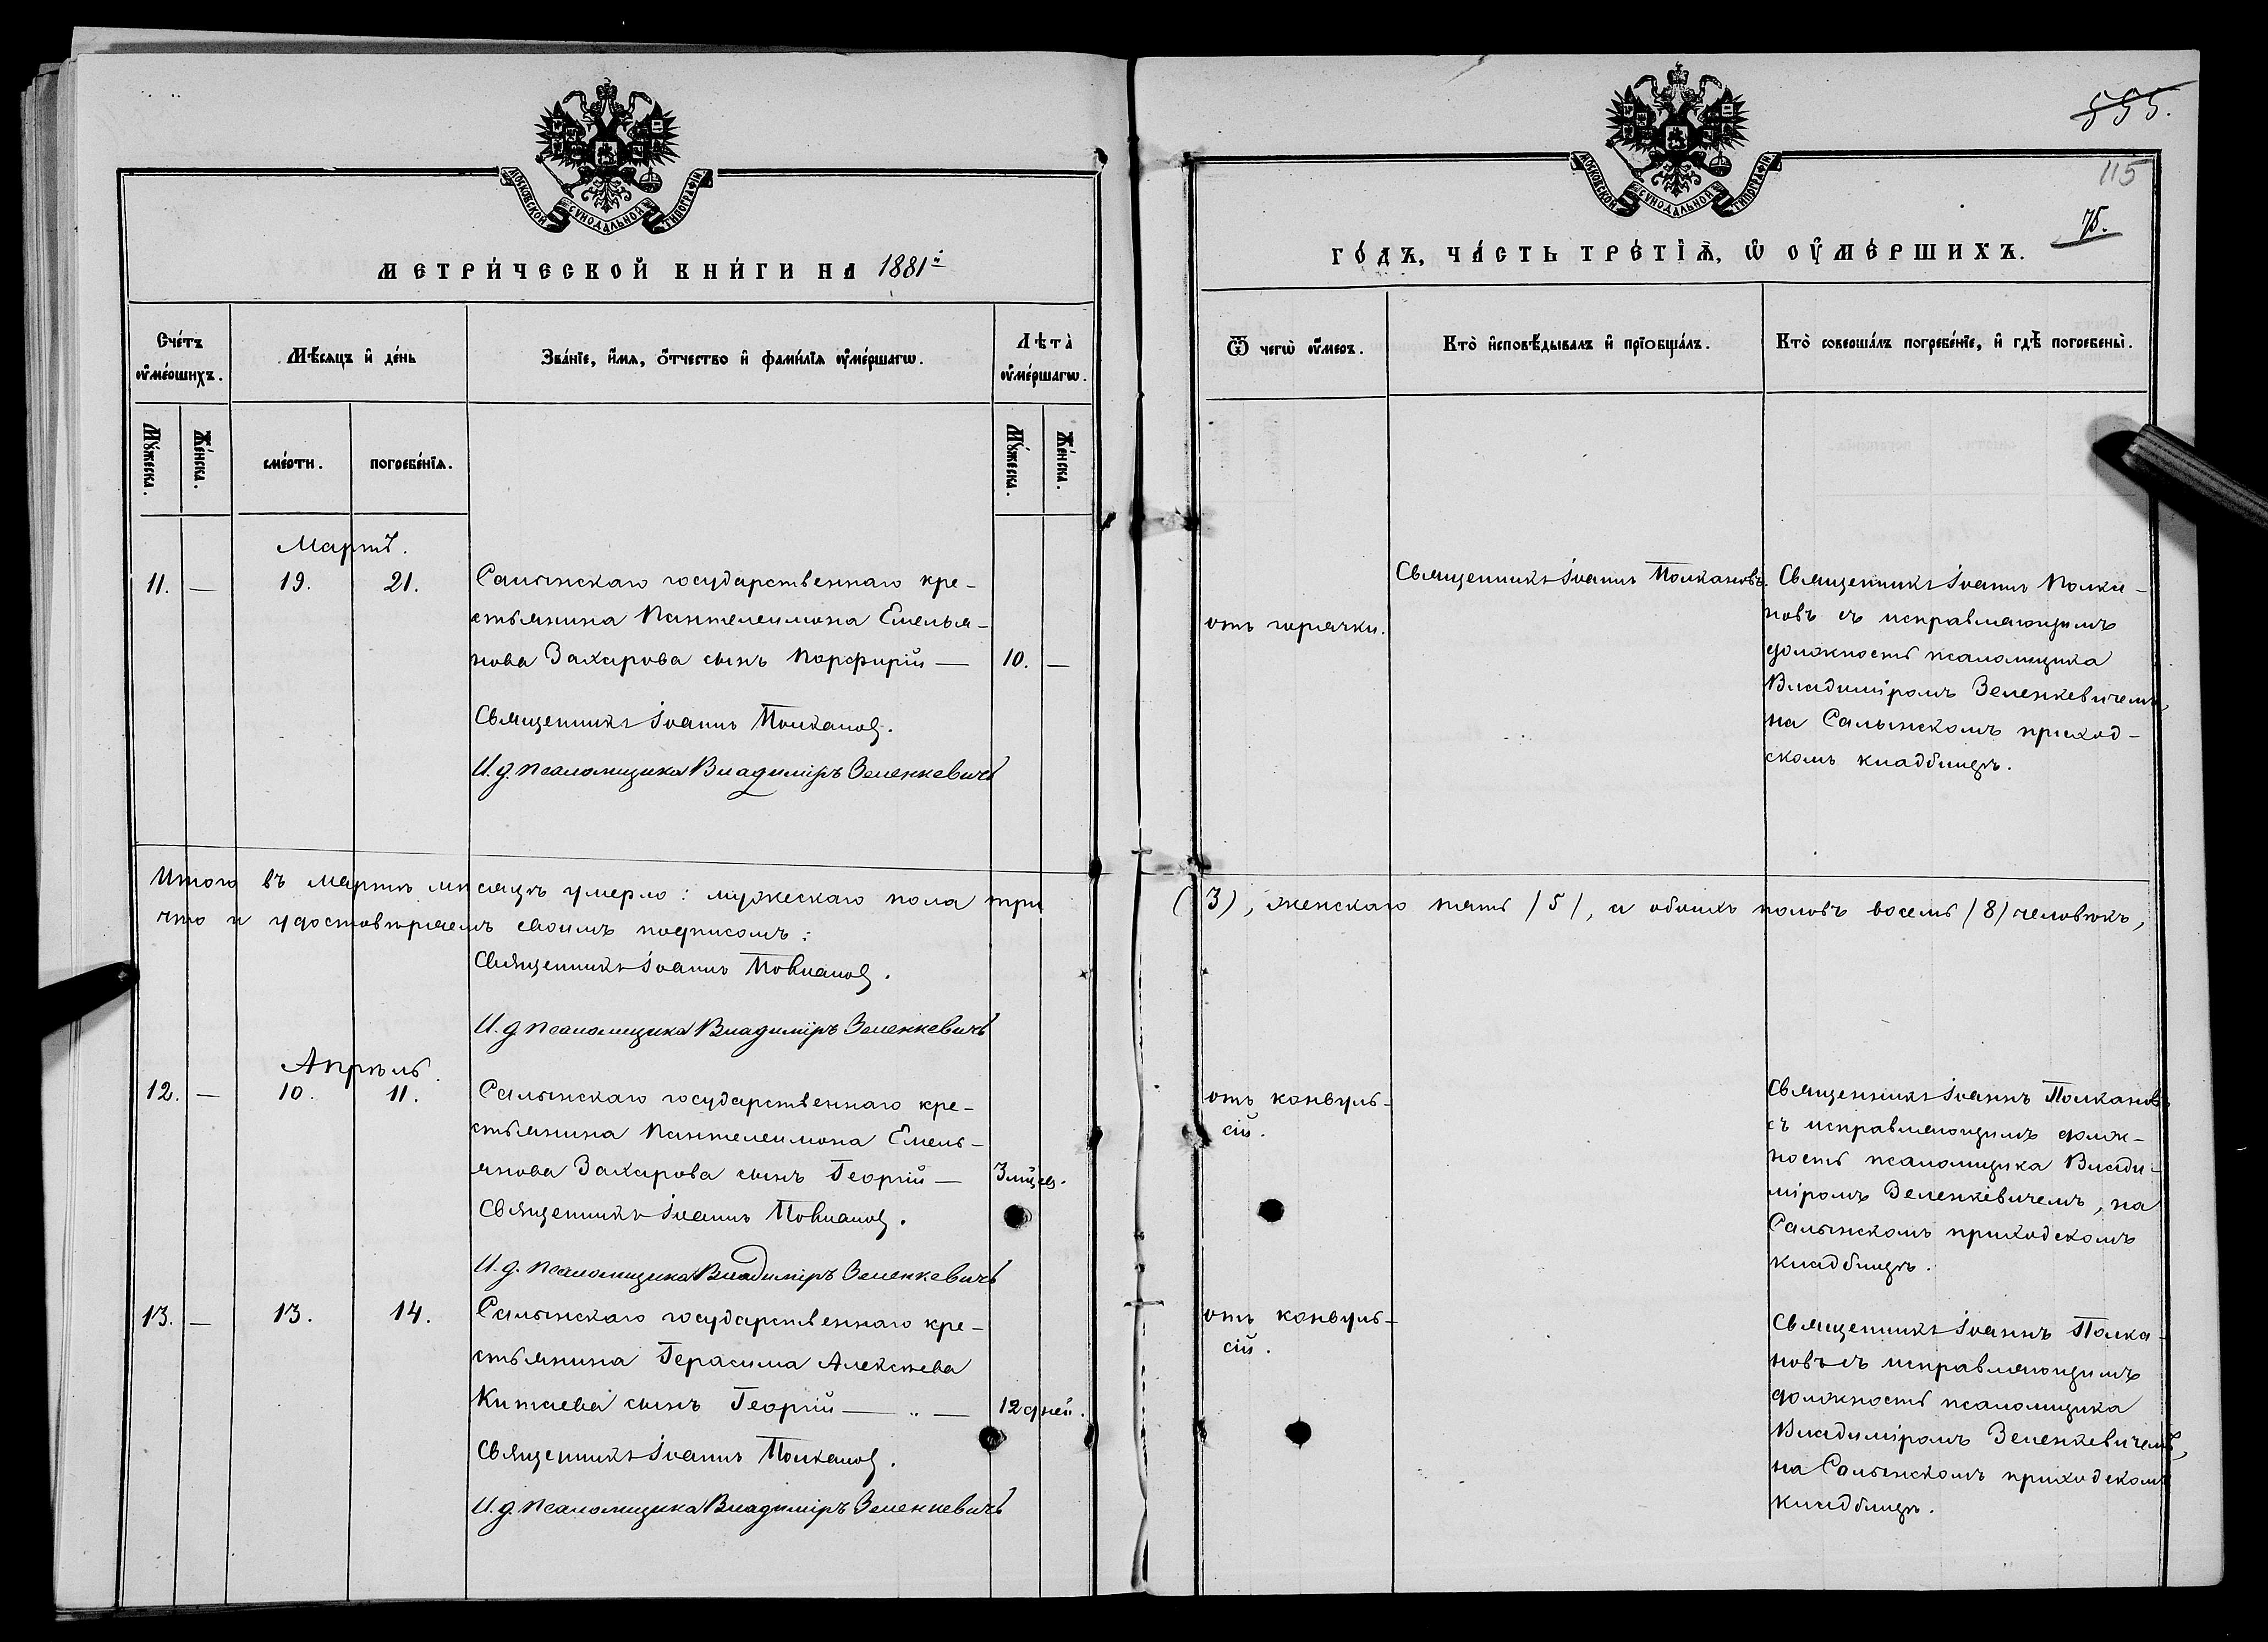 МОСКОВСКОЙ СѴНОДАЛЬНОЙ ТИПОГРАФІИ
МЕТРИ́ЧЕСКОЙ КНИ́ГИ НА 1881й
Сче́тъ оуме́ршихъ.
Мѣ́сяцъ и де́нь
Зва́нїе, и́мя, о́тчество и фами́лїя оуме́ршагѡ.
Лѣта̀ оуме́ршагѡ.
Му́жеска.
Же́нска.
сме́рти.
погребе́нїя.
Му́жеска.
Же́нска.
Мартъ.
11. — 19. 21. Салынскаго государственнаго кре-
стьянина Пантелеимона Емелья-
нова Захарова сынъ Порфирій — 10. —
Священникъ Іоаннъ Полкановъ.
И. д. псаломщика Владиміръ Зеленкевичъ
Итого въ мартѣ мѣсяцѣ умерло: мужескаго пола три
что и удостовѣряемъ своимъ подписомъ:
Священникъ Іоаннъ Полкановъ.
И. д псаломщика Владиміръ Зеленкевичъ
Апрѣль.
12. — 10. 11. Салынскаго государственнаго кре-
стьянина Пантелеимона Емель-
янова Захарова сынъ Георгій — 3 мѣсяц.
Священникъ Іоаннъ Полкановъ.
И. д. псаломщика Владиміръ Зеленкевичъ
13. — 13. 14. Салынскаго государственнаго кре-
стьянина Герасима Алексѣева
Китаева сынъ Георгій — „ — 12 дней.
Священникъ Іоаннъ Полкановъ.
И. д. псаломщика Владиміръ Зеленкевичъ
595.
115
75.
МОСКОВСКОЙ СѴНОДАЛЬНОЙ ТИПОГРАФІИ
ГО́ДЪ, ЧА́СТЬ ТРЕ́ТІЯ, Ѡ ОУМЕ́РШИХЪ.
Ѿ чегѡ̀ оу́меръ.
Кто̀ исповѣ́дывалъ и прїобща́лъ.
Кто̀ соверша́лъ погребе́нїе, и гдѣ̀ погребены̀.
отъ горячки.
Священникъ Іоаннъ Полкановъ.
Священникъ Іоаннъ Полка-
новъ съ исправляющимъ
должность псаломщика
Владиміромъ Зеленкевичемъ,
на Салынскомъ приход-
скомъ кладбищѣ.
(3), женскаго пять (5), а обоихъ половъ восемь (8) человѣкъ,
отъ конвуль-
сій.
Священникъ Іоаннъ Полкановъ
съ исправляющимъ долж-
ность псаломщика Влади-
міромъ Зеленкевичемъ, на
Салынскомъ приходскомъ
кладбищѣ.
отъ конвуль-
сій.
Священникъ Іоаннъ Полка-
новъ съ исправляющимъ
должность псаломщика
Владиміромъ Зеленкевичемъ,
на Салынскомъ приходскомъ
кладбищѣ.